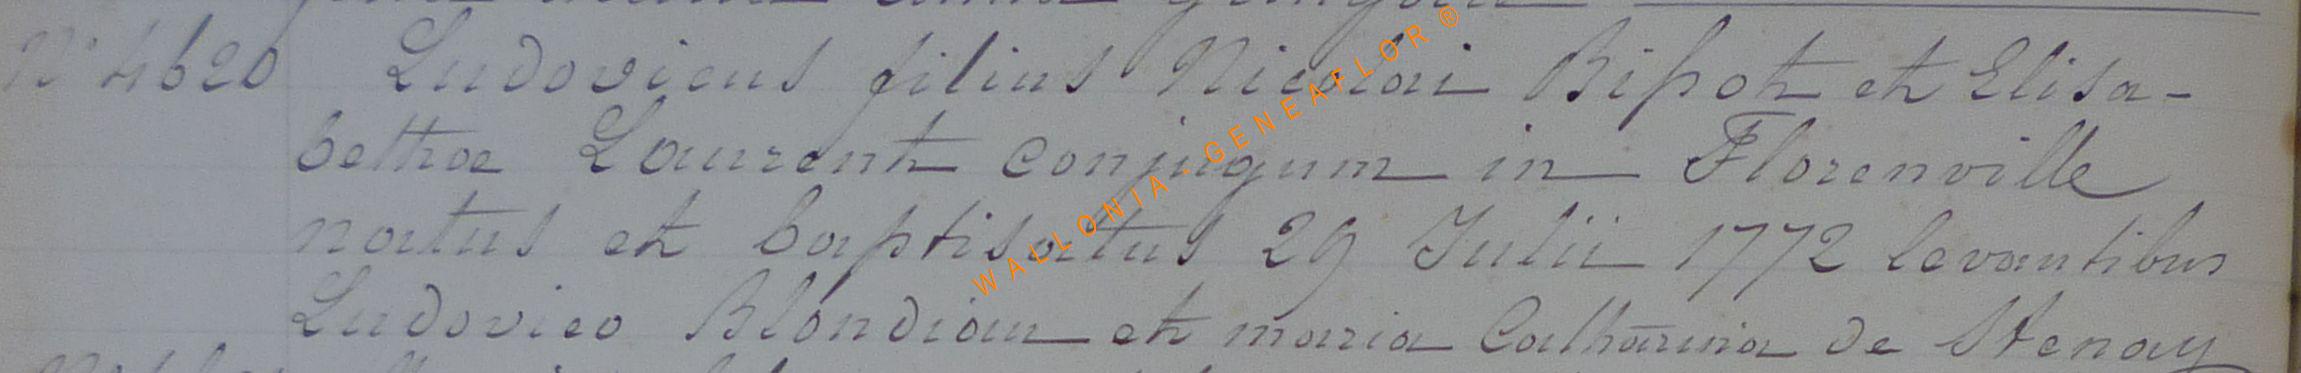 N° 4620 Ludovicus filius Nicolai Bipot et Elisa-
bethae Laurent conjugum in Florenville
natus et baptisatus 29 Julii 1772 levantibus
Ludovico Blondiau et maria Catharina de Stenay
WALLONIA - GENEAFLOR ®